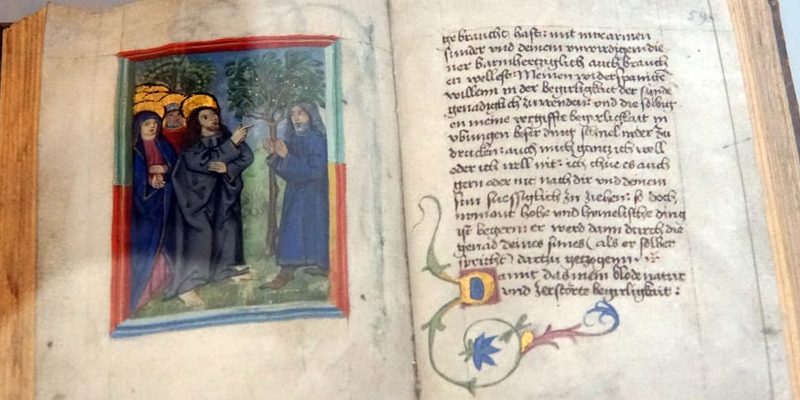 59
gebraucht hast: mit mir armen
sunder vnd deinem vnwirdigem die
ner barmhertziglich auch brauch
en wellest: Meinen widerspanige
willenn in der begirligkeit der sunde
genadiglich zuwenden vnd die selbig
en meine vergiffte begirligkeit in
vbungen beser ding so mel mder zu
drucken: auch mich gantz ich well
oder ich well nit: ich thue es auch
gern oder nit nach dir vnd deinem
sun suessiglich zu ziehen: so doch
nymant hohe vnd himelische ding
ist begern: er werd dann durch die
genad deines sunes (als er selber
spricht) dartzu getzogenn:
Damit das mein blode natur
vnd zerstörte begirligkeit: